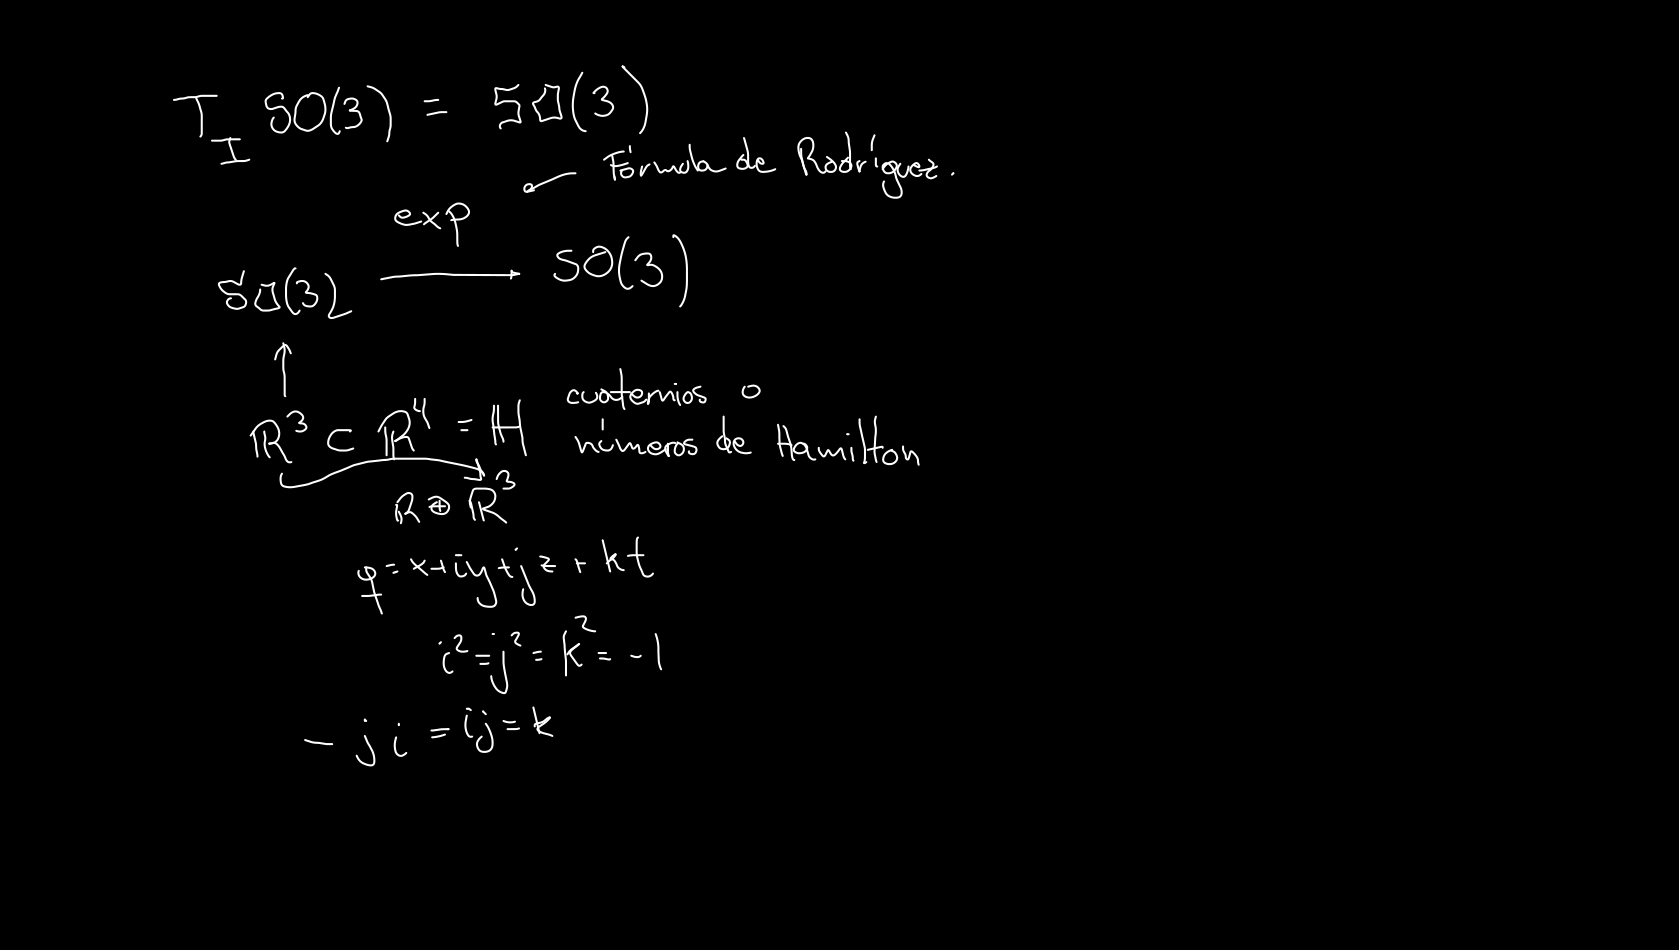 T_I SO(3) = 𝔰𝔬(3)
Fórmula de Rodríguez.
exp
𝔰𝔬(3) → SO(3)
↑
ℝ³ ⊂ ℝ⁴ = ℍ cuaternios o
números de Hamilton
ℝ ⊕ ℝ³
q = x + iy + jz + kt
i² = j² = k² = -1
- j i = ij = k